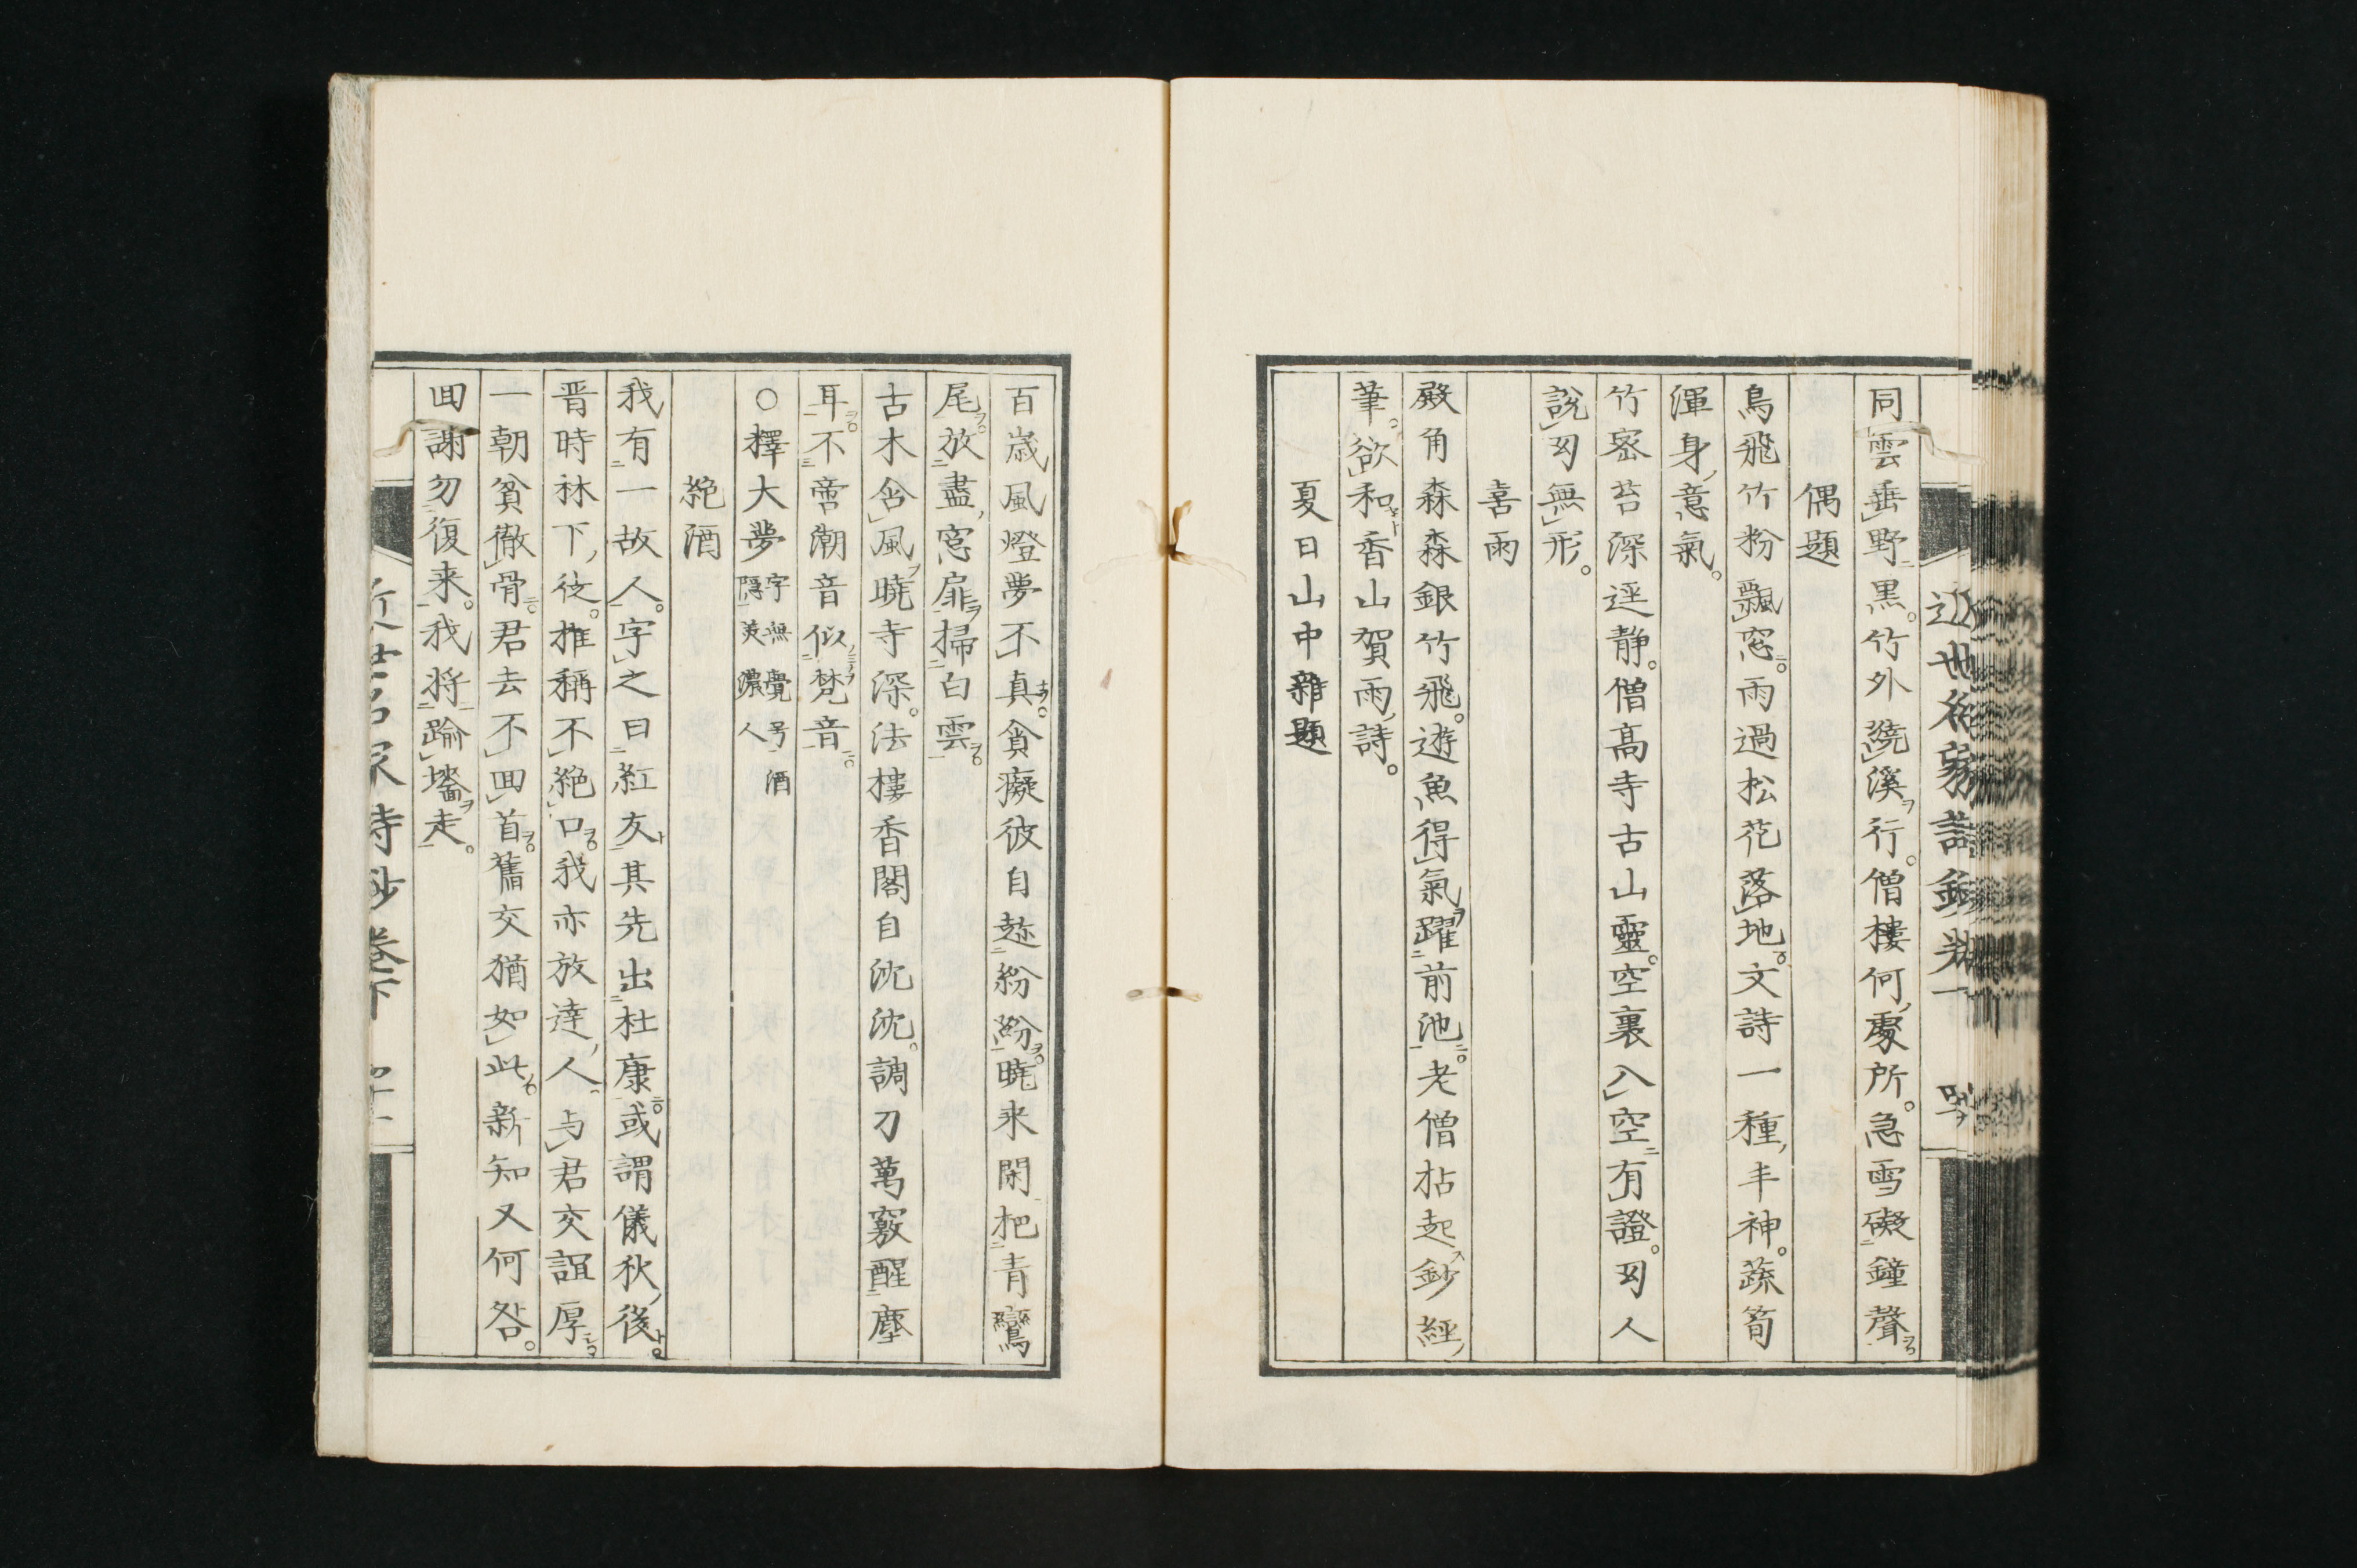 同雲垂野黒。竹外遶溪行。僧樓何處所。急雪礙鐘聲
偶題
鳥飛竹粉飄窓。雨過松花落地。文詩一種丰神。蔬筍
渾身意氣。
竹密苔深逕静。僧高寺古山靈。空裏入空有證。囙人
說囙無形。
喜雨
殿角森森銀竹飛。遊魚得氣躍前池。老僧拈起鈔經
筆。欲和香山賀雨詩。
夏日山中雜題
百歳風燈夢不真。貪癡彼自趂紛紛。曉来閑把青鸞
尾。放盡窓扉掃白雲。
古木含風曉寺深。法樓香閣自沈沈。調刀萬竅醒塵
耳。不啻潮音似梵音。
○釋大夢字無覺号酒隠美濃人
絶酒
我有一故人。字之曰紅友其先出杜康。或謂儀狄後。
晋時林下徒。推稱不絶口。我亦放達人与君交誼厚。
一朝貧徹骨。君去不回首。舊交猶如此。新知又何咎。
回謝勿復来。我将踰墻走。
近世名家詩鈔卷下